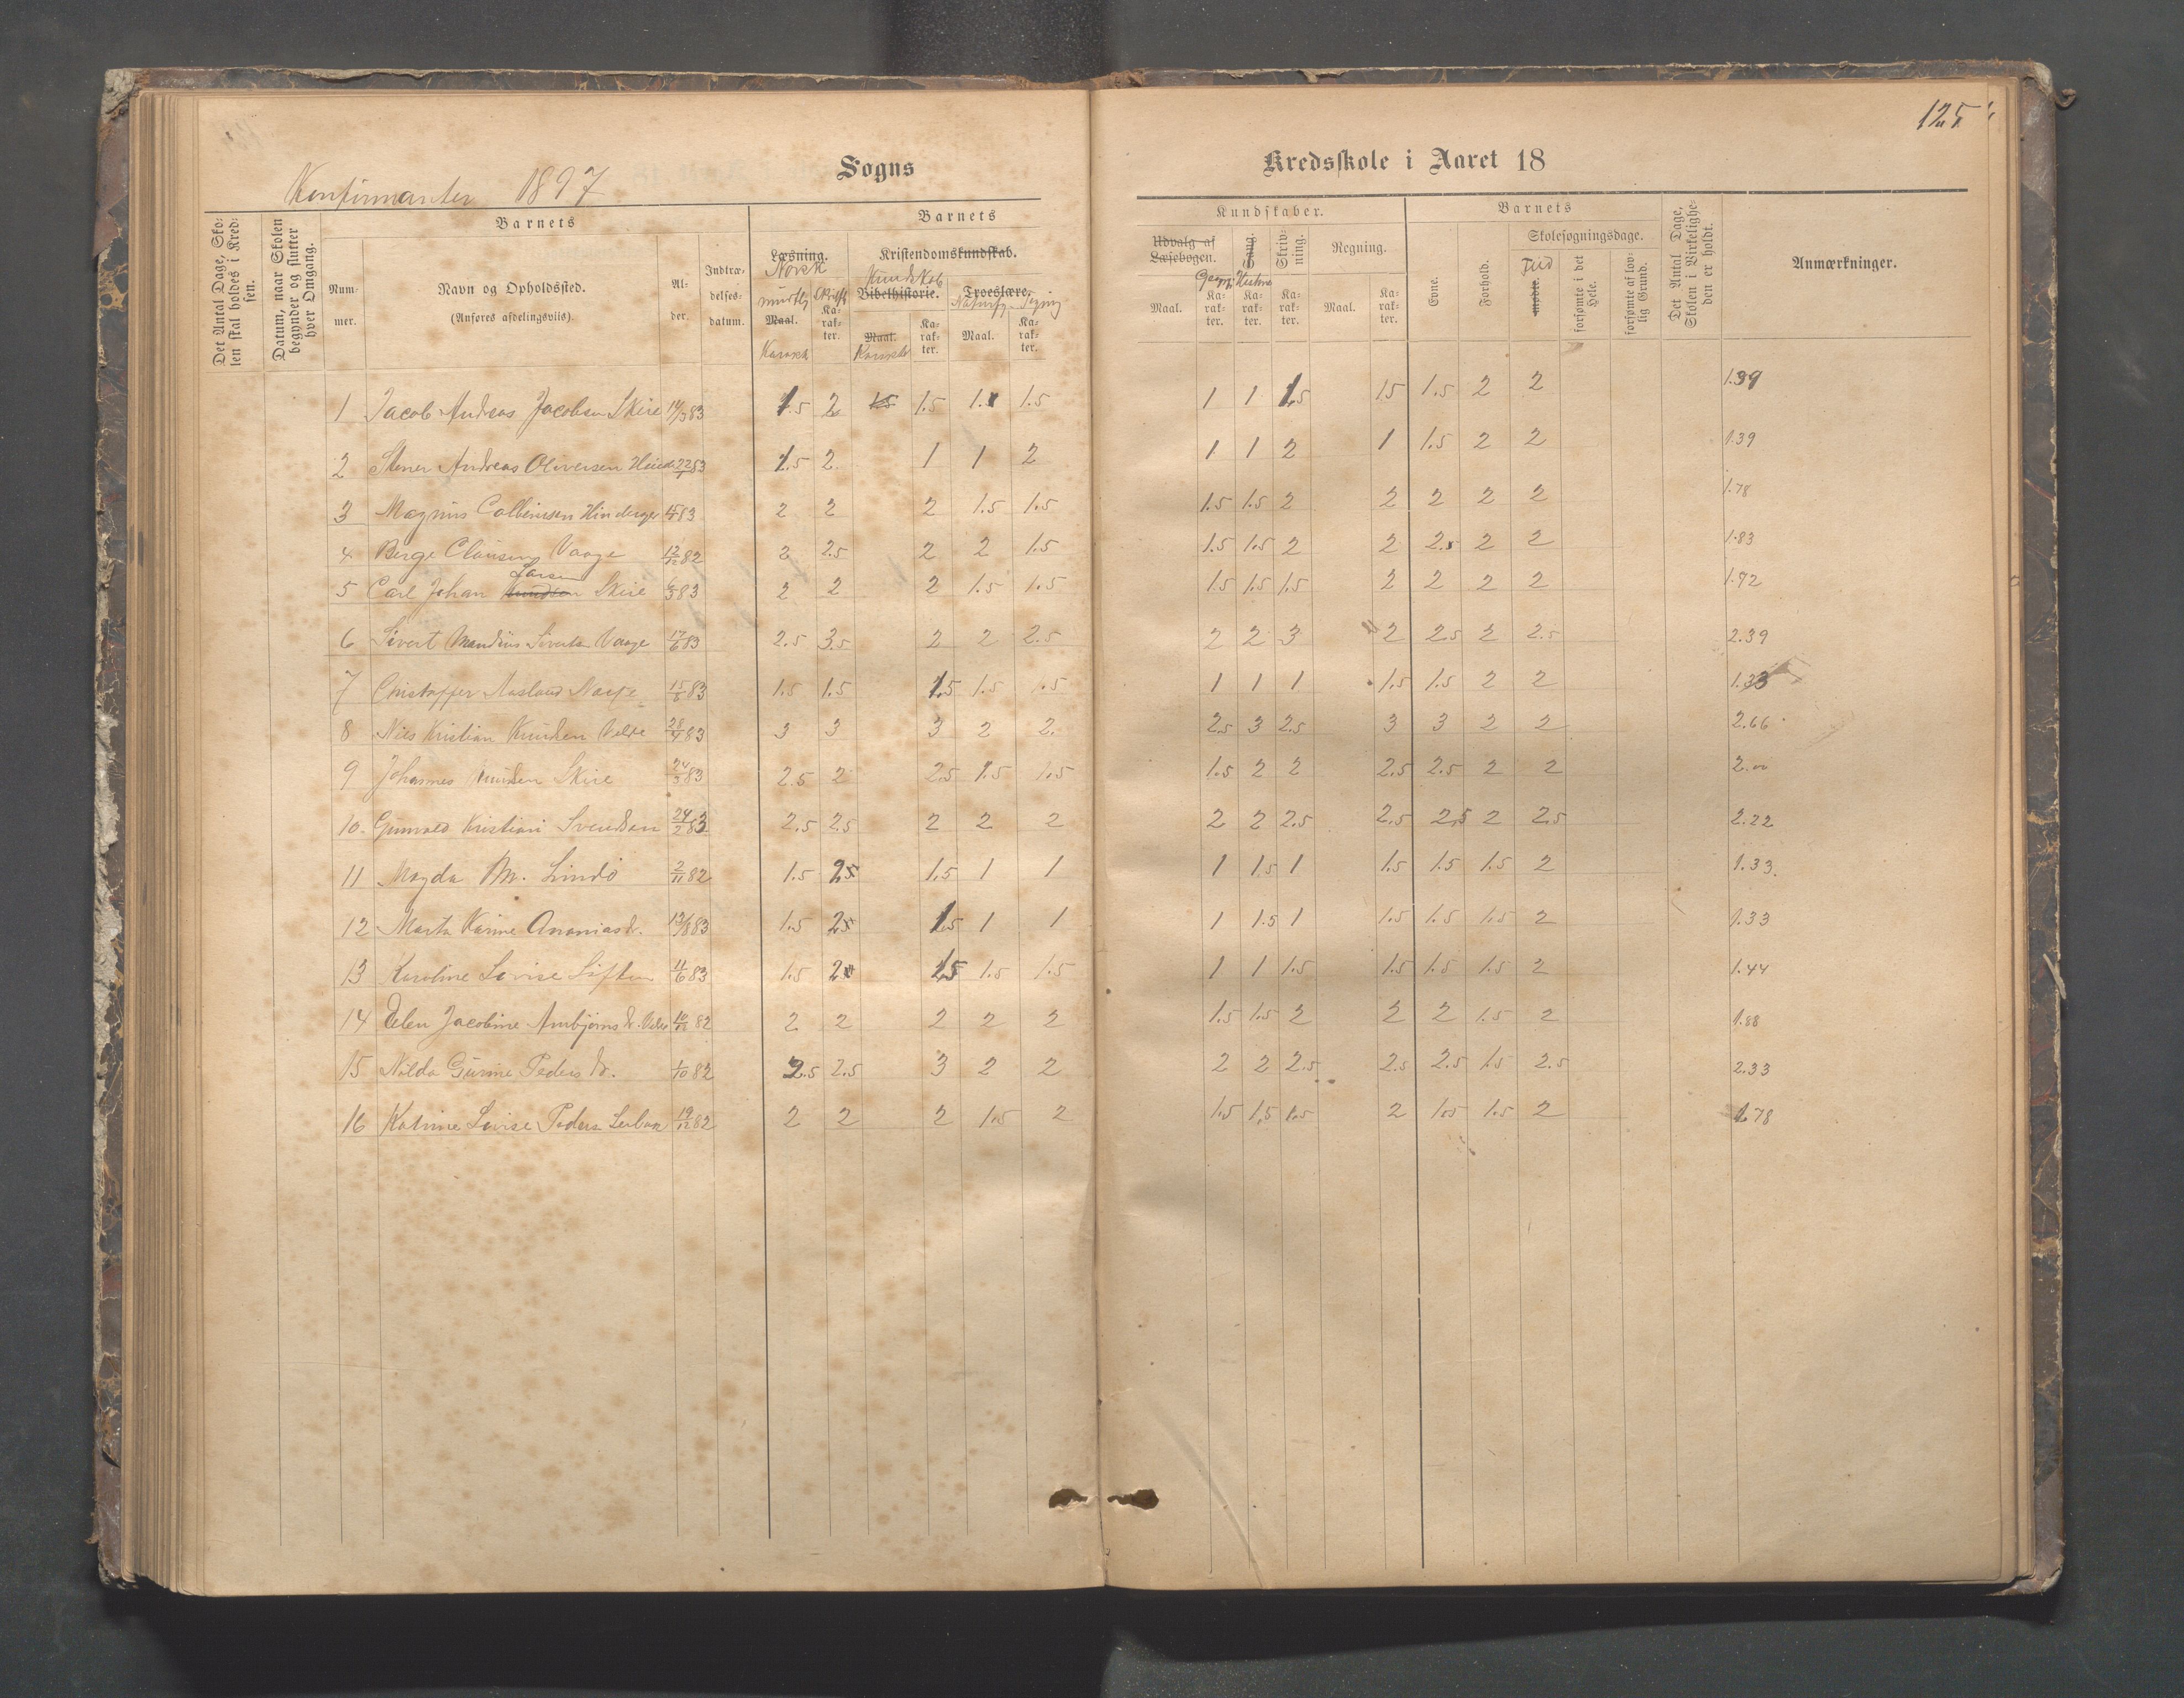 125
Konfirmanter 1897 Sogns Kredsskole i Aaret 18
Det Antal Dage, Skolen skal holdes i Kredsen.
Datum, naar Skolen begynder og slutter hver Omgang.
Barnets
Nummer.
Navn og Opholdssted.
(Anføres afdelingsviis).
Alder.
Indtrædelsesdatum.
Barnets
Læsning. Norsk
mündtl. Skriftl.
Maal. Karakter.
Karakt
Kristendomskundskab.
Kundskab
Bibelhistorie. Troeslære.
Naturfg. Tegning
Maal. Karakter. Maal. Karakter.
Karakter
Kundskaber.
Udvalg af Læsebogen. Sang. Skrivning. Regning.
Geogr. Historie
Maal. Karakter. Karakter. Karakter. Maal. Karakter.
Barnets
Evne. Forhold.
Skolesøgningsdage.
Flid
mødte. forsømte i det Hele. forsømte af lovlig Grund.
Det Antal Dage, Skolen i Virkeligheden er holdt.
Anmærkninger.
1 Jacob Andreas Jacobsen Skire 14/3 83 1.5 2 1.5 1.5 1. 1.5 1 1 1.5 15 1.5 2 2 1.39
2 Stener Andreas Oliversen 22 83 1.5 2. 1 1 2 1 1 2 1 1.5 2 2 1.39
3 Magnus Colbeinsen Hinderager 83 2 2 2 1.5 1.5 1.5 1.5 2 2 2 2 2 1.78
4 Berge Clausen Vaage 12/12 82 2 2.5 2 2 1.5 1.5 1.5 2 2 2. 2 2 1.83
5 Carl Johan Knudsen Larsen Skire 83 2 2 2 1.5 1.5 1.5 1.5 1.5 2 2 2 2 1.72
6 Sivert Mandius Sivertsen Vaage 17/6 83 2.5 3.5 2 2 2.5 2 2 3 2 2.5 2 2.5 2.39
7 Christoffer Aasland 15/6 83 1.5 1.5 1.5 1.5 1.5 1 1 1 1.5 1.5 2 2 1.33
8 Nils Kristian Knudsen Velde 28 83 3 3 3 2 2. 2.5 3 2.5 3 3 2 2 2.66
9 Johannes Knudsen Skire 24/3 83 2.5 2 2.5 1.5 1.5 1.5 2 2 2.5 2.5 2 2 2.00
10. Gunvald Kristian Svendsen 24/2 83 2.5 2.5 2 2 2 2 2 2.5 2.5 2.5 2 2.5 2.22
11 Magda M. Lindö 2/11 82 1.5 2.5 1.5 1 1 1 1.5 1 1.5 1.5 1.5 2 1.33.
12 Marta Karine Ananiasd. 13/8 83 1.5 2.5 1.5 1 1 1 1.5 1 1.5 1.5 1.5 2 1.33
13 Karoline Lovise 11/6 83 1.5 2 1.5 1.5 1.5 1 1 1.5 1.5 1.5 1.5 2 1.44
14 Elen Jacobine Arnbjörnsd. 10/12 82 2 2 2 2 2 1.5 1.5 2 2 2 1.5 2 1.88
15 Nilda Gurine Pedersd. 1/10 82 2.5 2.5 3 2 2 2 2 2.5 2.5 2.5 1.5 2.5 2.33
16 Katrine Lovise Peders 19/12 82 2 2 2 1.5 2 1.5 1.5 1.5 2 1.5 1.5 2 1.78